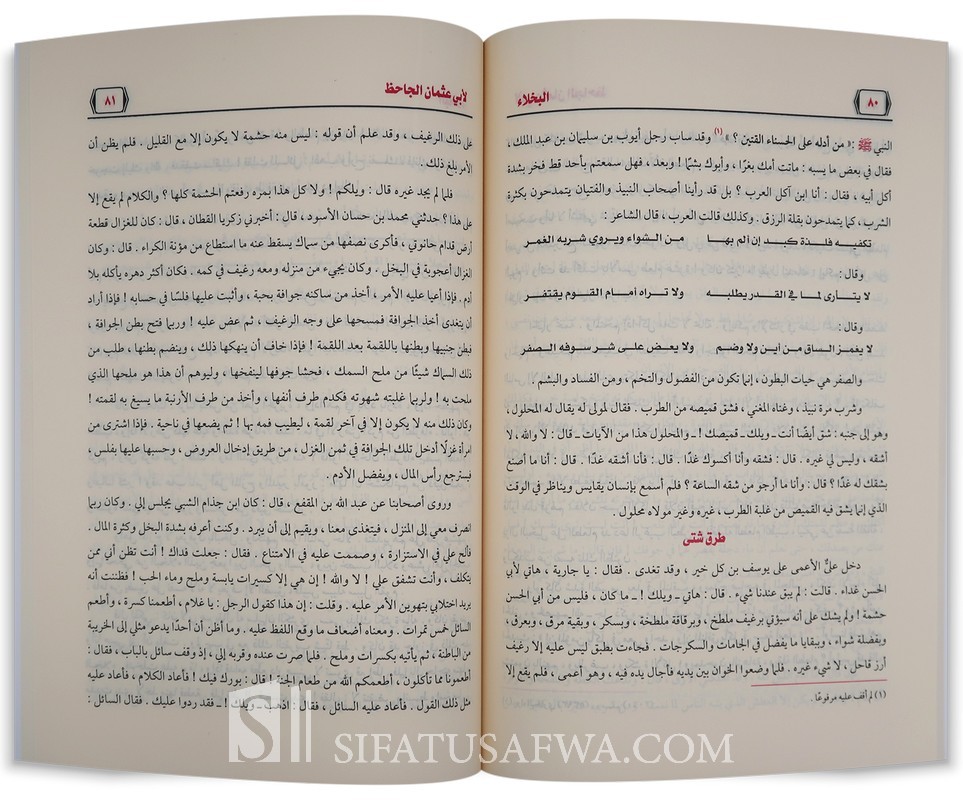 ٨٠
البخلاء
النبي ﷺ : « من أدله على الحسناء القتين ؟ » (١) وقد ساب رجل أيوب بن سليمان بن عبد الملك ،
فقال في بعض ما يسبه : ماتت أمك بغرًا ، وأبوك بشمًا ! وبعد ، فهل سمعتم بأحد قط فخر بشدة
أكل أبيه ، فقال : أنا ابن آكل العرب ؟ بل قد رأينا أصحاب النبيذ والفتيان يتمدحون بكثرة
الشرب ، كما يتمدحون بقلة الرزق . وكذلك قالت العرب ، قال الشاعر :
تكفيه فلذة كبد إن ألم بها من الشواء ويروي شربه الغمر
وقال :
لا يتأرى لما في القدر يطلبه ولا تراه أمام القوم يقتفر
وقال :
لا يغمز الساق من أين ولا وصم ولا يعض على شر سوفه الصفر
والصفر هي حيات البطون ، إنما تكون من الفضول والتخم ، ومن الفساد والبشم .
وشرب مرة نبيذ ، وغناه المغني ، فشق قميصه من الطرب . فقال لمولى له يقال له المحلول ،
وهو إلى جنبه : شق أيضًا أنت ـ ويلك ـ قميصك ! ـ والمحلول هذا من الآيات ـ قال : لا والله ، لا
أشقه ، وليس لي غيره . قال : فشقه وأنا أكسوك غدًا . قال : فأنا أشقه غدًا . قال : أنا ما أصنع
بشقك له غدًا ؟ قال : وأنا ما أرجو من شقه الساعة ؟ فلم أسمع بإنسان يقايس ويناظر في الوقت
الذي إنما يشق فيه القميص من غلبة الطرب ، غيره وغير مولاه محلول .
طرق شتى
دخل عليّ الأعمى على يوسف بن كل خير ، وقد تغدى . فقال : يا جارية ، هاتي لأبي
الحسن غداء . قالت : لم يبق عندنا شيء . قال : هاتي ـ ويلك ! ـ ما كان ، فليس من أبي الحسن
حشمة ! ولم يشك علي أنه سيؤتى برغيف ملطخ ، وبرقاقة ملطخة ، وبسكر ، وبقية مرق ، وبعرق ،
وبفضلة شواء ، وببقايا ما يفضل في الجامات والسكرجات . فجاءت بطبق ليس عليه إلا رغيف
أرز قاحل ، لا شيء غيره . فلما وضعوا الخوان بين يديه فأجال يده فيه ، وهو أعمى ، فلم يقع إلا
(١) لم أقف عليه مرفوعًا .
لأبي عثمان الجاحظ
٨١
على ذلك الرغيف ، وقد علم أن قوله : ليس منه حشمة لا يكون إلا مع القليل . فلم يظن أن
الأمر بلغ ذلك .
فلما لم يجد غيره قال : ويلكم ! ولا كل هذا بمره رفعتم الحشمة كلها ؟ والكلام لم يقع إلا
على هذا ؟ حدثني محمد بن حسان الأسود ، قال : أخبرني زكريا القطان ، قال : كان للغزال قطعة
أرض قدام حانوتي ، فأكرى نصفها من سماك يسقط عنه ما استطاع من مؤنة الكراء . قال : وكان
الغزال أعجوبة في البخل . وكان يجيء من منزله ومعه رغيف في كمه . فكان أكثر دهره يأكله بلا
أدم . فإذا أعيا عليه الأمر ، أخذ من ساكنه جوافة بحبة ، وأثبت عليها فلسًا في حسابه ! فإذا أراد
أن يتغدى أخذ الجوافة فمسحها على وجه الرغيف ، ثم عض عليه ! وربما فتح بطن الجوافة ،
فبطن جنبيها وبطنها باللقمة بعد اللقمة ! فإذا خاف أن ينهكها ذلك ، وينضم بطنها ، طلب من
ذلك السماك شيئًا من ملح السمك ، فحشا جوفها لينفخها ، وليوهم أن هذا هو ملحها الذي
ملحت به ! ولربما غلبته شهوته فكدم طرف أنفها ، وأخذ من طرف الأرنبة ما يسيغ به لقمته !
وكان ذلك منه لا يكون إلا في آخر لقمة ، ليطيب فمه بها ! ثم يضعها في ناحية . فإذا اشترى من
امرأة غزلًا أدخل تلك الجوافة في ثمن الغزل ، من طريق إدخال العروض ، وحسبها عليها بفلس ،
فيسترجع رأس المال ، ويفضل الأدم .
وروى أصحابنا عن عبد الله بن المقفع ، قال : كان ابن جذام الشبي يجلس إلي . وكان ربما
انصرف معي إلى المنزل ، فيتغدى معنا ، ويقيم إلى أن يبرد . وكنت أعرفه بشدة البخل وكثرة المال .
فألح علي في الاستزارة ، وصممت عليه في الامتناع . فقال : جعلت فداك ! أنت تظن أني ممن
يتكلف ، وأنت تشفق علي ! لا والله ! إن هي إلا كسيرات يابسة وملح وماء الحب ! فظننت أنه
يريد اختلابي بتهوين الأمر عليه . وقلت : إن هذا كقول الرجل : يا غلام ، أطعمنا كسرة ، وأطعم
السائل خمس تمرات . ومعناه أضعاف ما وقع اللفظ عليه . وما أظن أن أحدًا يدعو مثلي إلى الخريبة
من الباطنة ، ثم يأتيه بكسرات وملح . فلما صرت عنده وقربه إلي ، إذ وقف سائل بالباب ، فقال :
أطعمونا مما تأكلون ، أطعمكم الله من طعام الجنة ! قال : بورك فيك ! فأعاد الكلام ، فأعاد عليه
مثل ذلك القول . فأعاد عليه السائل ، فقال : اذهب ـ ويلك ! ـ فقد ردوا عليك . فقال السائل :
SIFATUSAFWA.COM